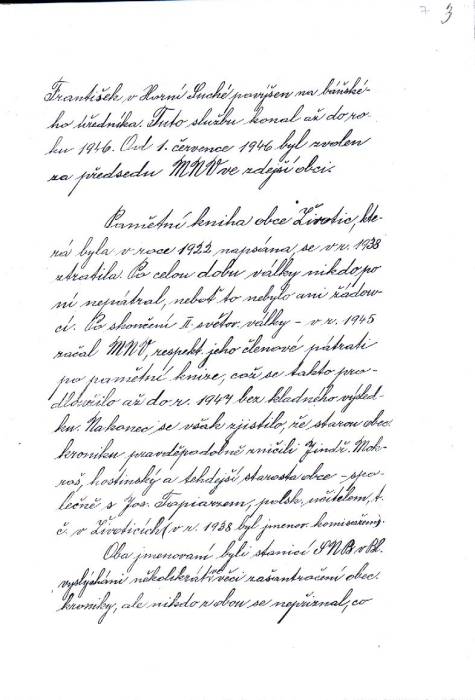 3
František, v Horní Suché povýšen na báňské-
ho úředníka. Tuto službu konal až do ro-
ku 1946. Od 1. července 1946 byl zvolen
za předsedu MNV ve zdejší obci.
Pamětní kniha obce Životic, kte-
rá byla v roce 1922 napsána, se v r. 1938
ztratila. Po celou dobu války nikdo po
ní nepátral, neboť to nebylo ani žádou-
cí. Po skončení II. světov. války – v r. 1945
začal MNV, respekt. jeho členové pátrati
po pamětní knize, což se takto pro-
dloužilo až do r. 1947 bez kladného výsled-
ku. Nakonec se však zjistilo, že starou obec.
kroniku pravděpodobně zničili Jindř. Mok-
roš, hostinský a tehdejší starosta obce – spo-
lečně s Jos. Topiarzem, polsk. učitelem, t.
č. v Životicích (v r. 1938 byl jmenov. komisařem).
Oba jmenovaní byli stanicí SNB v Bl.
vyslýcháni několikrát věci zašantročení obec.
kroniky, ale nikdo z obou se nepřiznal, co